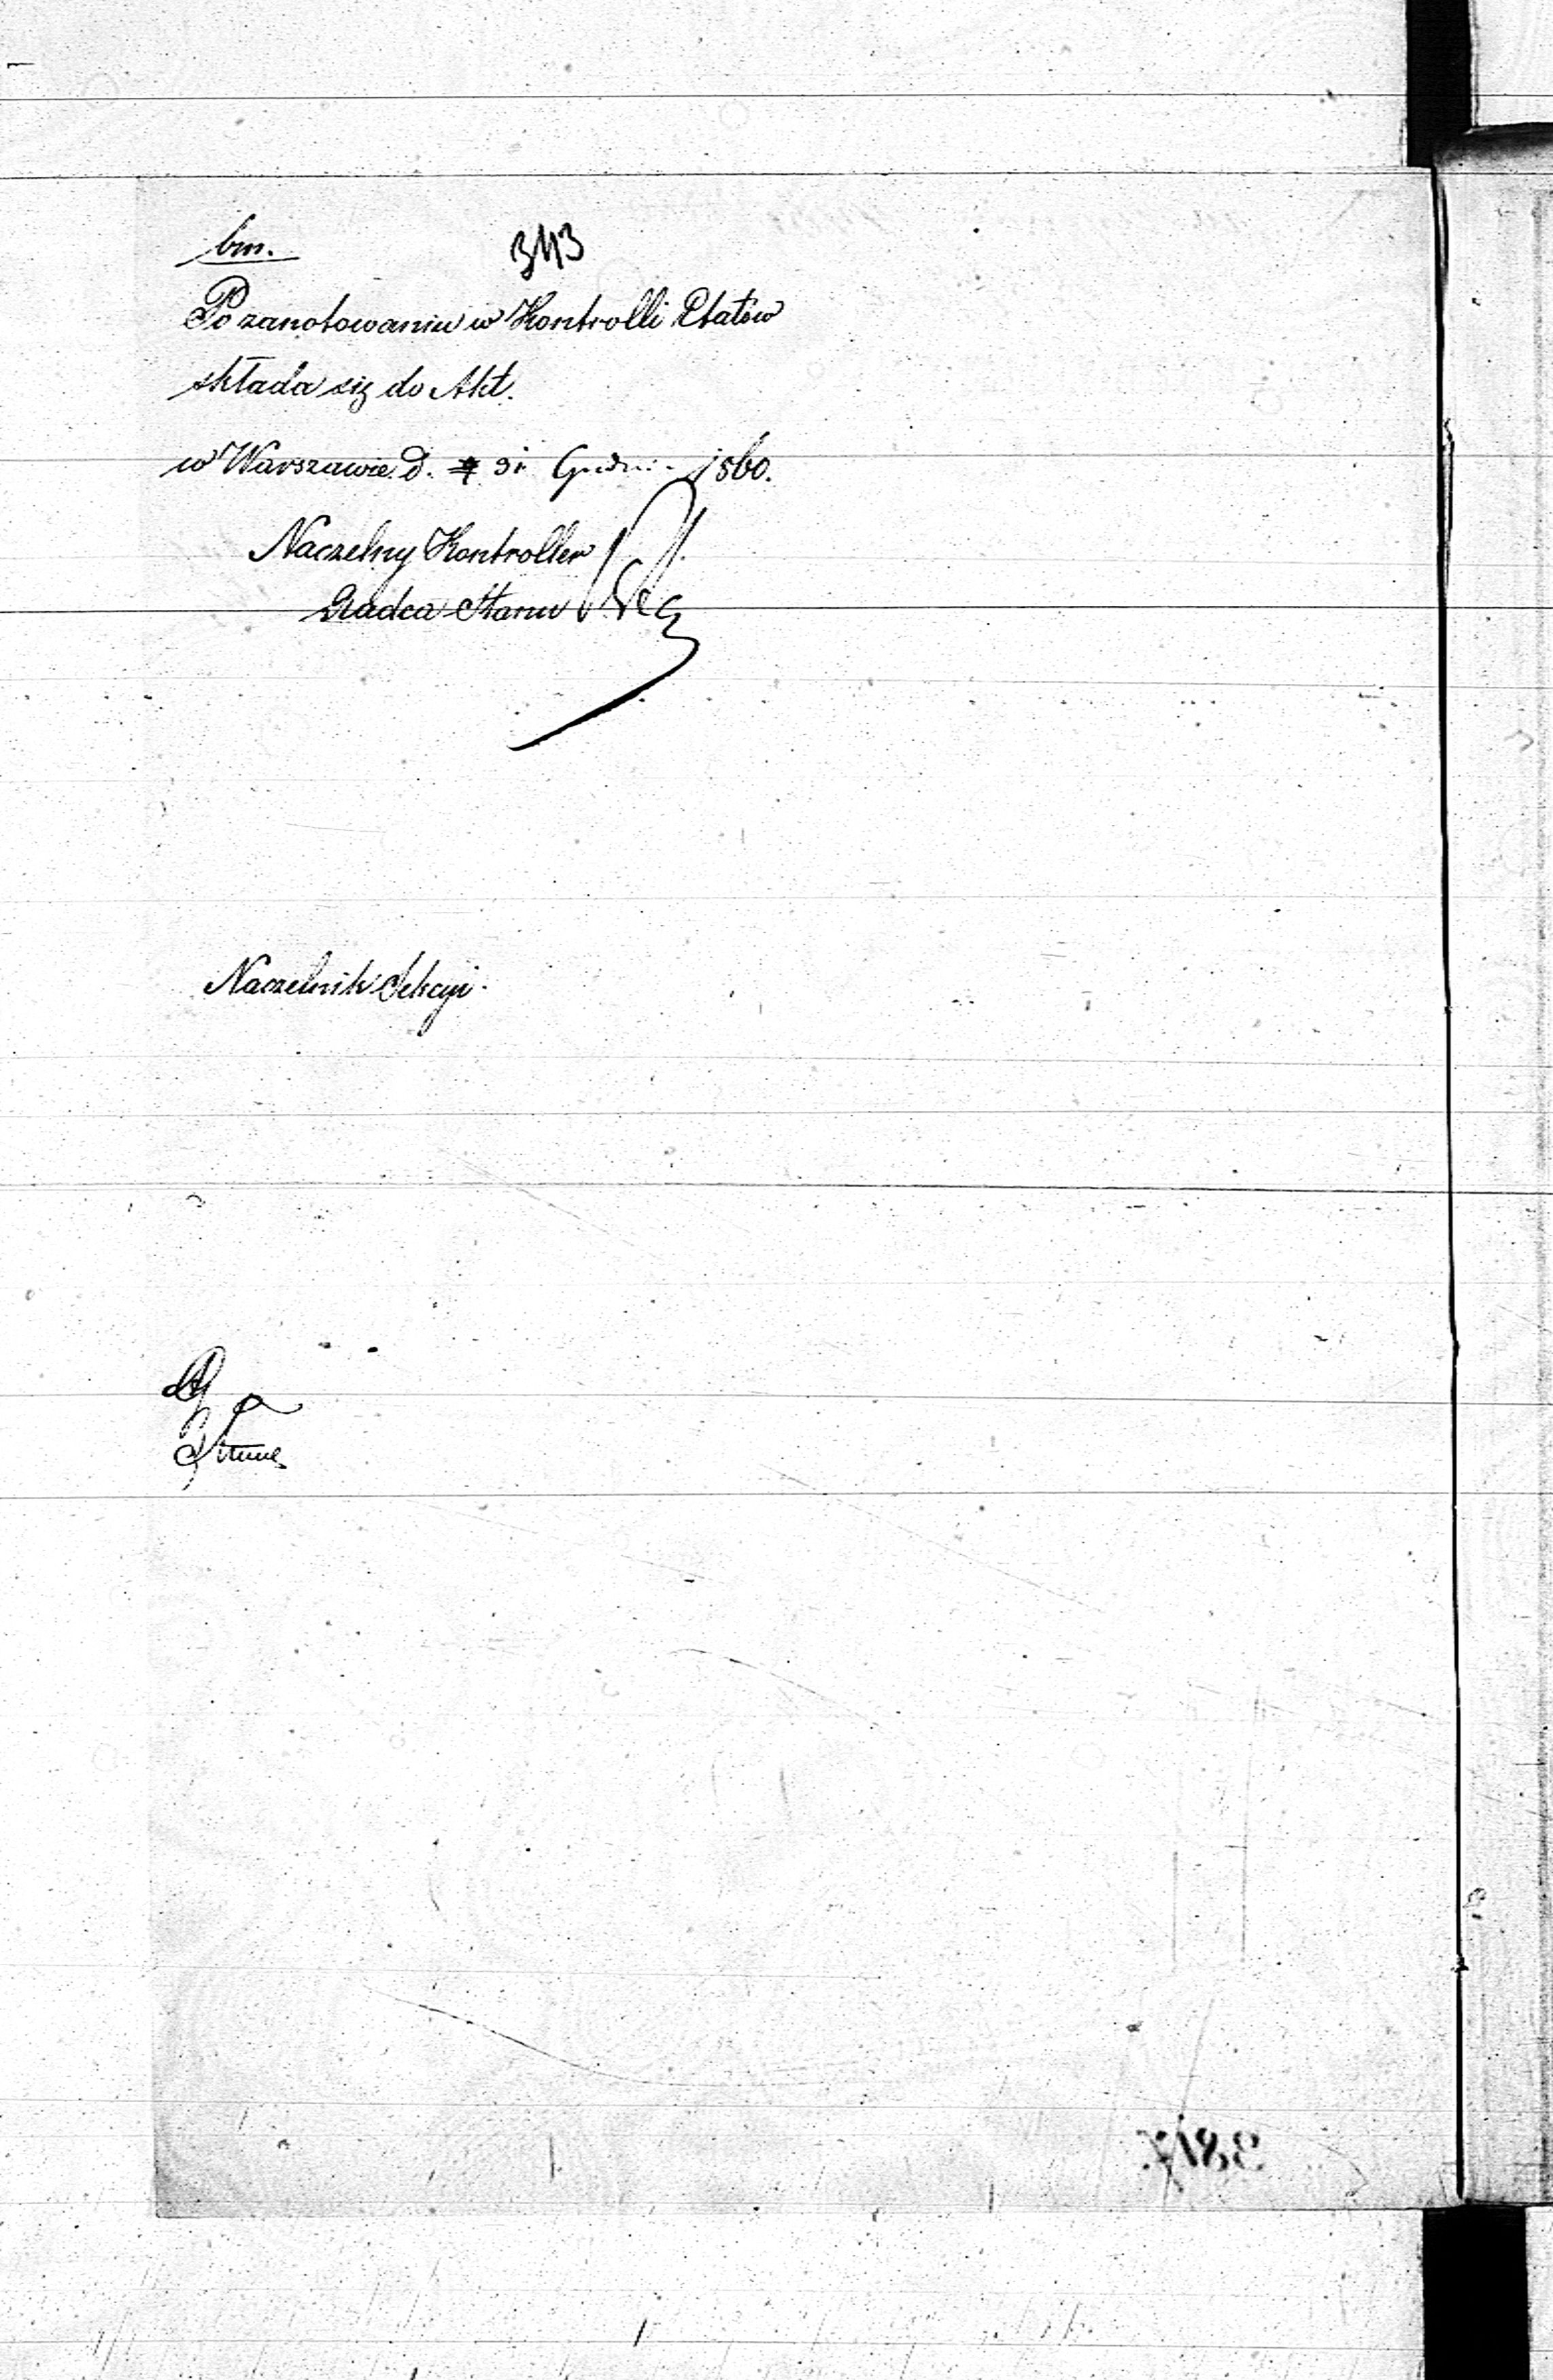 bm. 343
Po zanotowaniu w Kontrolli Etatów
składa się do Akt.
w Warszawie d. 31 Grudnia 1860.
Naczelny Kontroller
Radca Stanu
Naczelnik Sekcyi